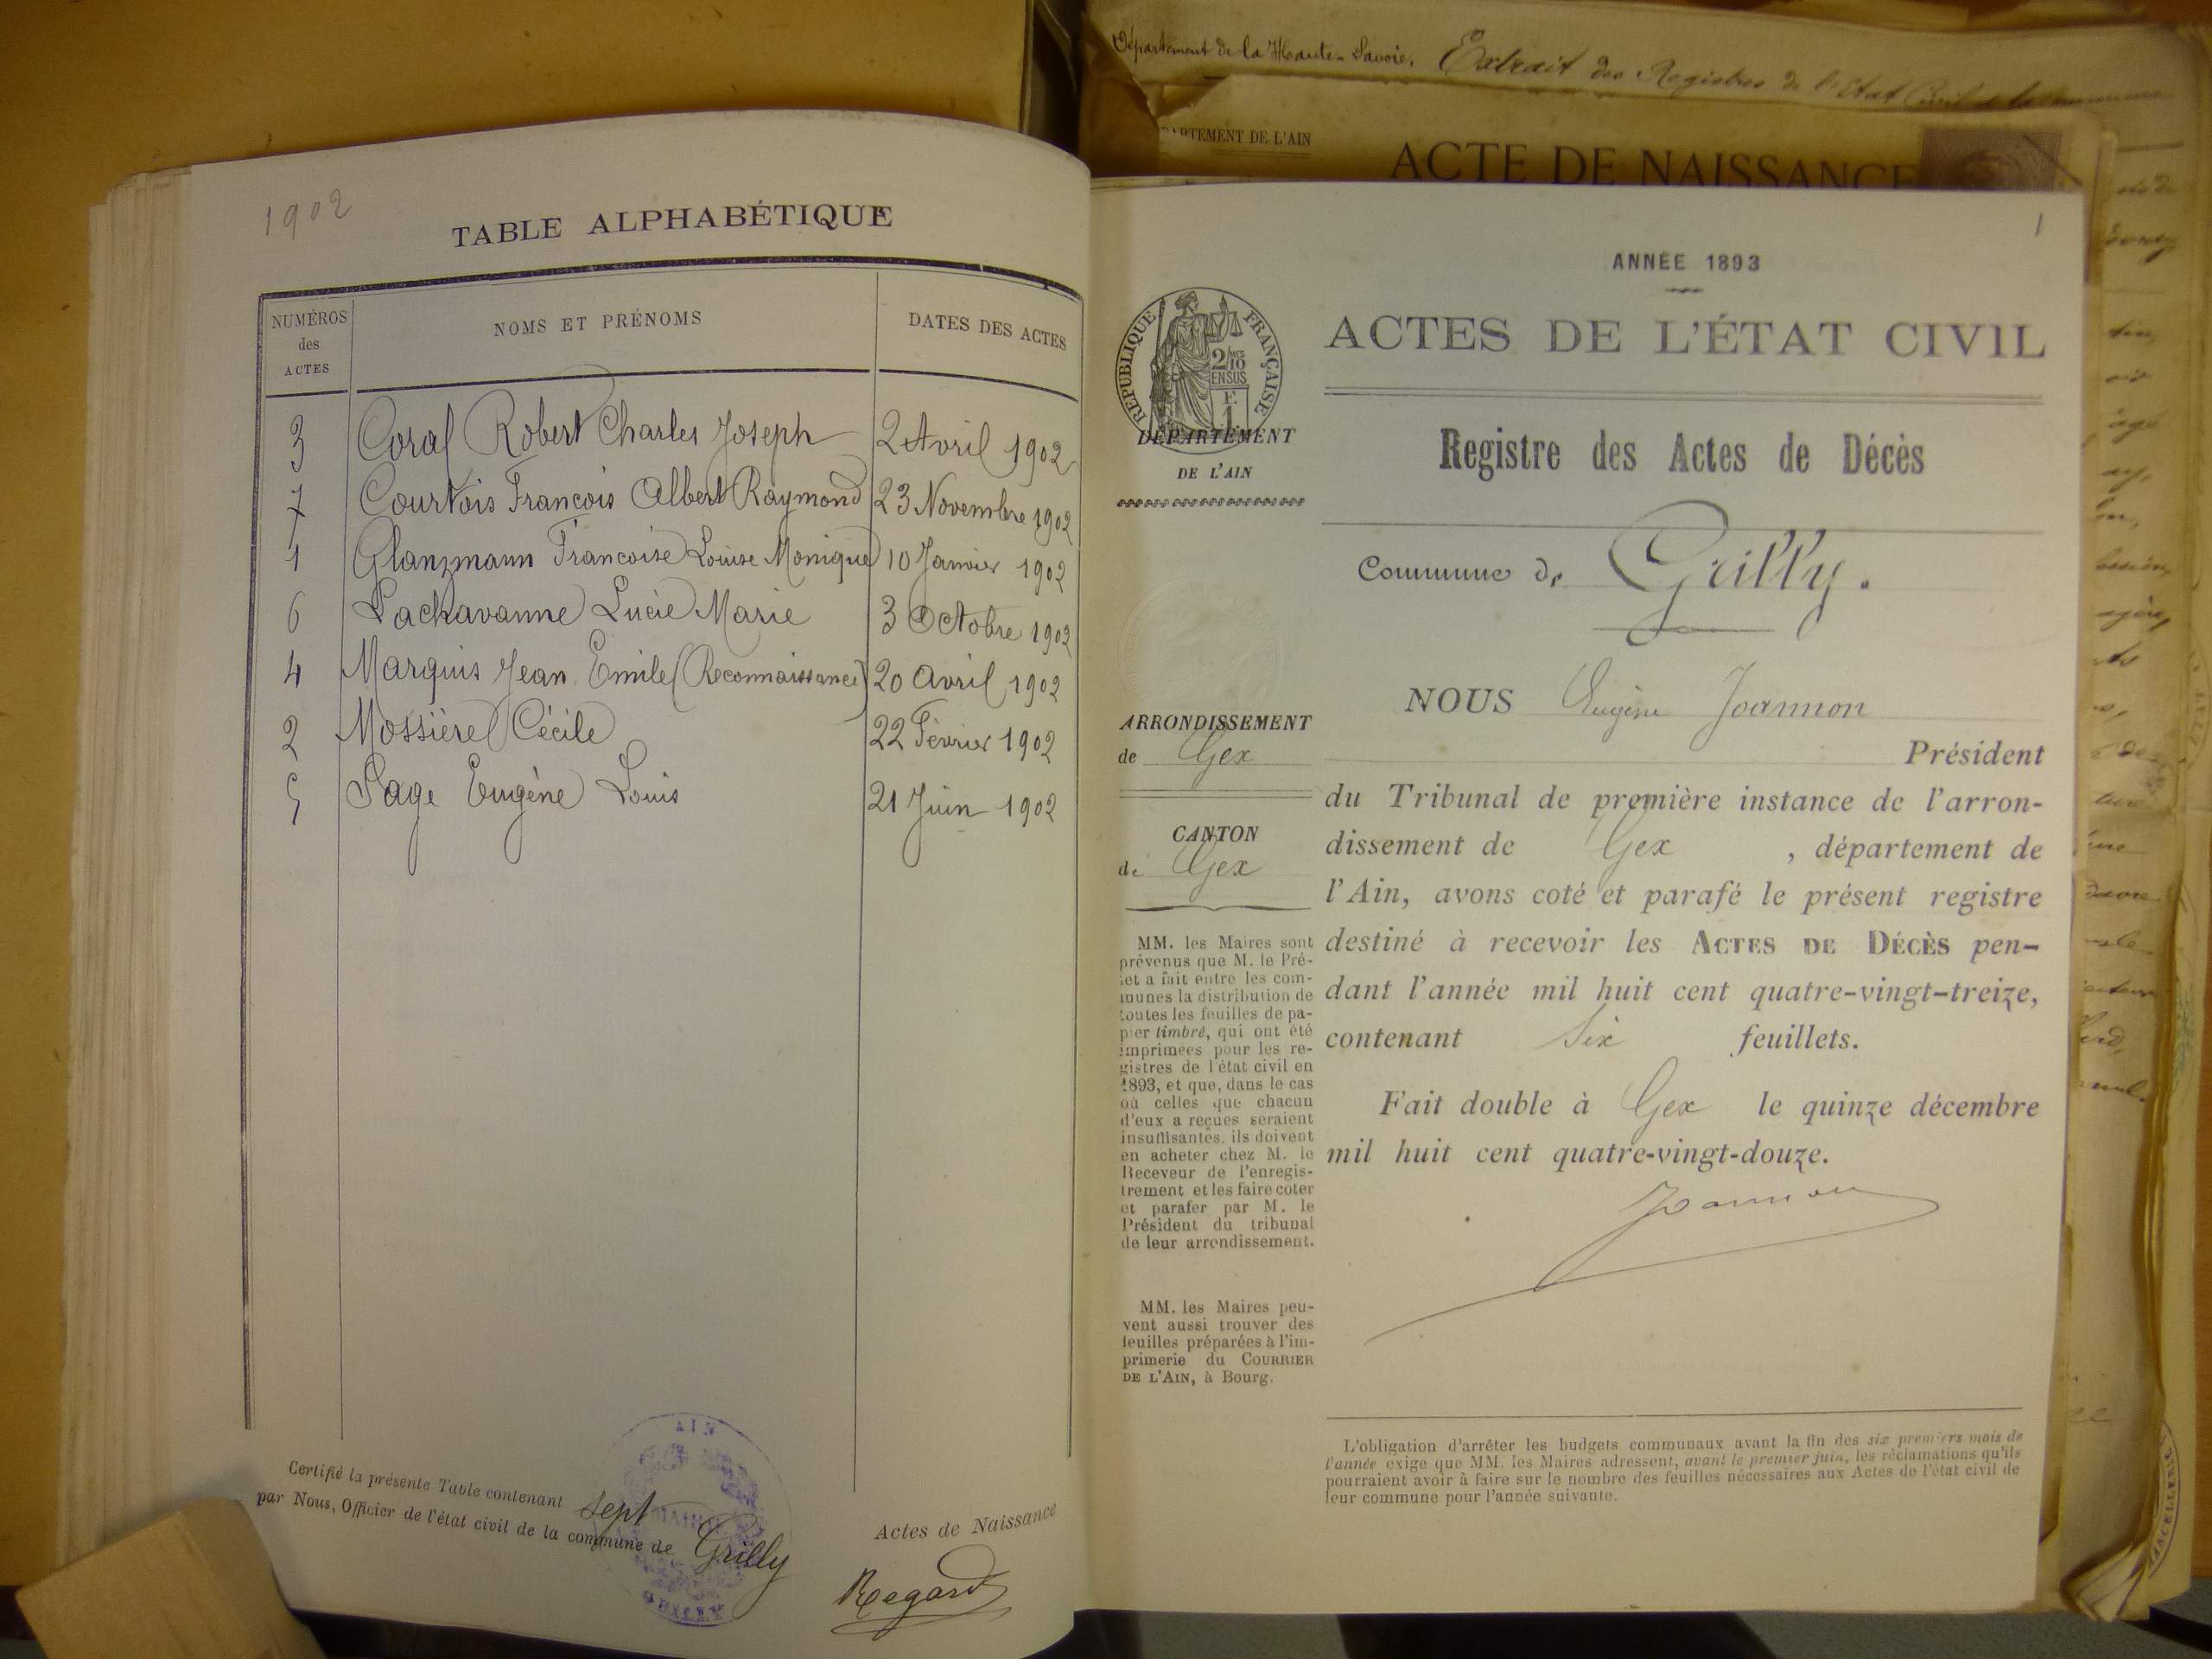 Département de la Haute-Savoie. Extrait des Registres de l'Etat Civil de la commune
DÉPARTEMENT DE L'AIN
ACTE DE NAISSANCE
1902
TABLE ALPHABÉTIQUE
NUMÉROS des ACTES
NOMS ET PRÉNOMS
DATES DES ACTES
3 Coral Robert Charles Joseph 2 Avril 1902
7 Courtois François Albert Raymond 23 Novembre 1902
1 Glanzmann Francoise Louise Monique 10 Janvier 1902
6 Lachavanne Lucie Marie 3 Octobre 1902
4 Marquis Jean Emile (Reconnaissance) 20 Avril 1902
2 Mossière Cécile 22 Février 1902
5 Sage Eugène Louis 21 Juin 1902
Certifié la présente Table contenant sept Actes de Naissance
par Nous, Officier de l'état civil de la commune de Grilly
AIN
MAIRIE
GRILLY
Regard
1
ANNÉE 1893
ACTES DE L'ÉTAT CIVIL
RÉPUBLIQUE FRANÇAISE
2/10 MES
EN SUS
F.
1
DÉPARTEMENT
DE L'AIN
Registre des Actes de Décès
Commune de Grilly.
ARRONDISSEMENT
de Gex
CANTON
de Gex
MM. les Maires sont
prévenus que M. le Pré-
fet a fait entre les com-
munes la distribution de
toutes les feuilles de pa-
pier timbré, qui ont été
imprimées pour les re-
gistres de l'état civil en
1893, et que, dans le cas
où celles que chacun
d'eux a reçues seraient
insuffisantes, ils doivent
en acheter chez M. le
Receveur de l'enregis-
trement et les faire coter
et parafer par M. le
Président du tribunal
de leur arrondissement.
MM. les Maires peu-
vent aussi trouver des
feuilles préparées à l'im-
primerie du COURRIER
DE L'AIN, à Bourg.
NOUS Eugène Joannon
Président
du Tribunal de première instance de l'arron-
dissement de Gex , département de
l'Ain, avons coté et parafé le présent registre
destiné à recevoir les ACTES DE DÉCÈS pen-
dant l'année mil huit cent quatre-vingt-treize,
contenant six feuillets.
Fait double à Gex le quinze décembre
mil huit cent quatre-vingt-douze.
Joannon
L'obligation d'arrêter les budgets communaux avant la fin des six premiers mois de
l'année exige que MM. les Maires adressent, avant le premier juin, les réclamations qu'ils
pourraient avoir à faire sur le nombre des feuilles nécessaires aux Actes de l'état civil de
leur commune pour l'année suivante.